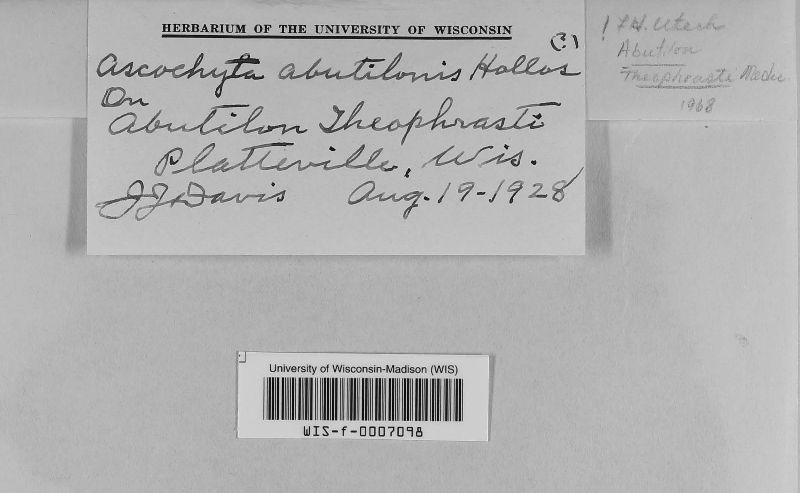 HERBARIUM OF THE UNIVERSITY OF WISCONSIN
(?)
Ascochyta abutilonis Hollos
On
Abutilon Theophrasti
Platteville, Wis.
J J Davis Aug. 19-1928
! F.H. Utech
Abutilon
Theophrasti Medic.
1968
University of Wisconsin-Madison (WIS)
WIS-f-0007098